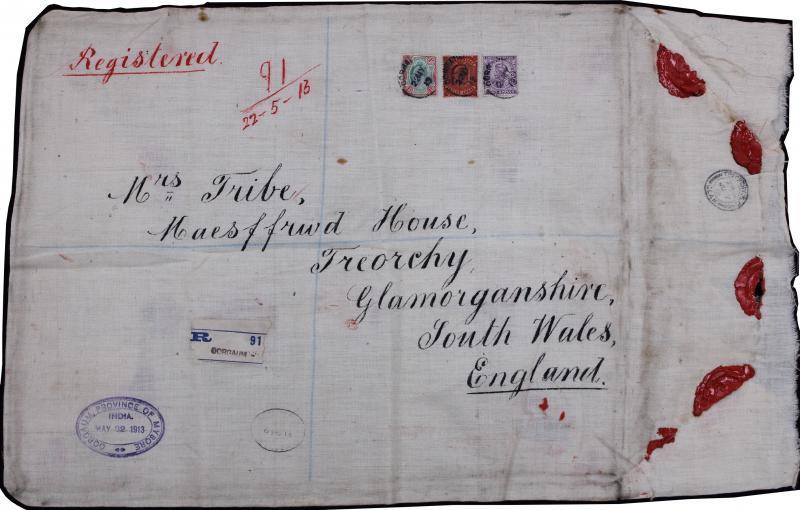 Registered.
91
22-5-13
Mrs Tribe,
Maesffrwd House,
Treorchy,
Glamorganshire,
South Wales,
England.
R 91
OORGAUM
OORGAUM, PROVINCE OF MYSORE
INDIA.
MAY 22 1913